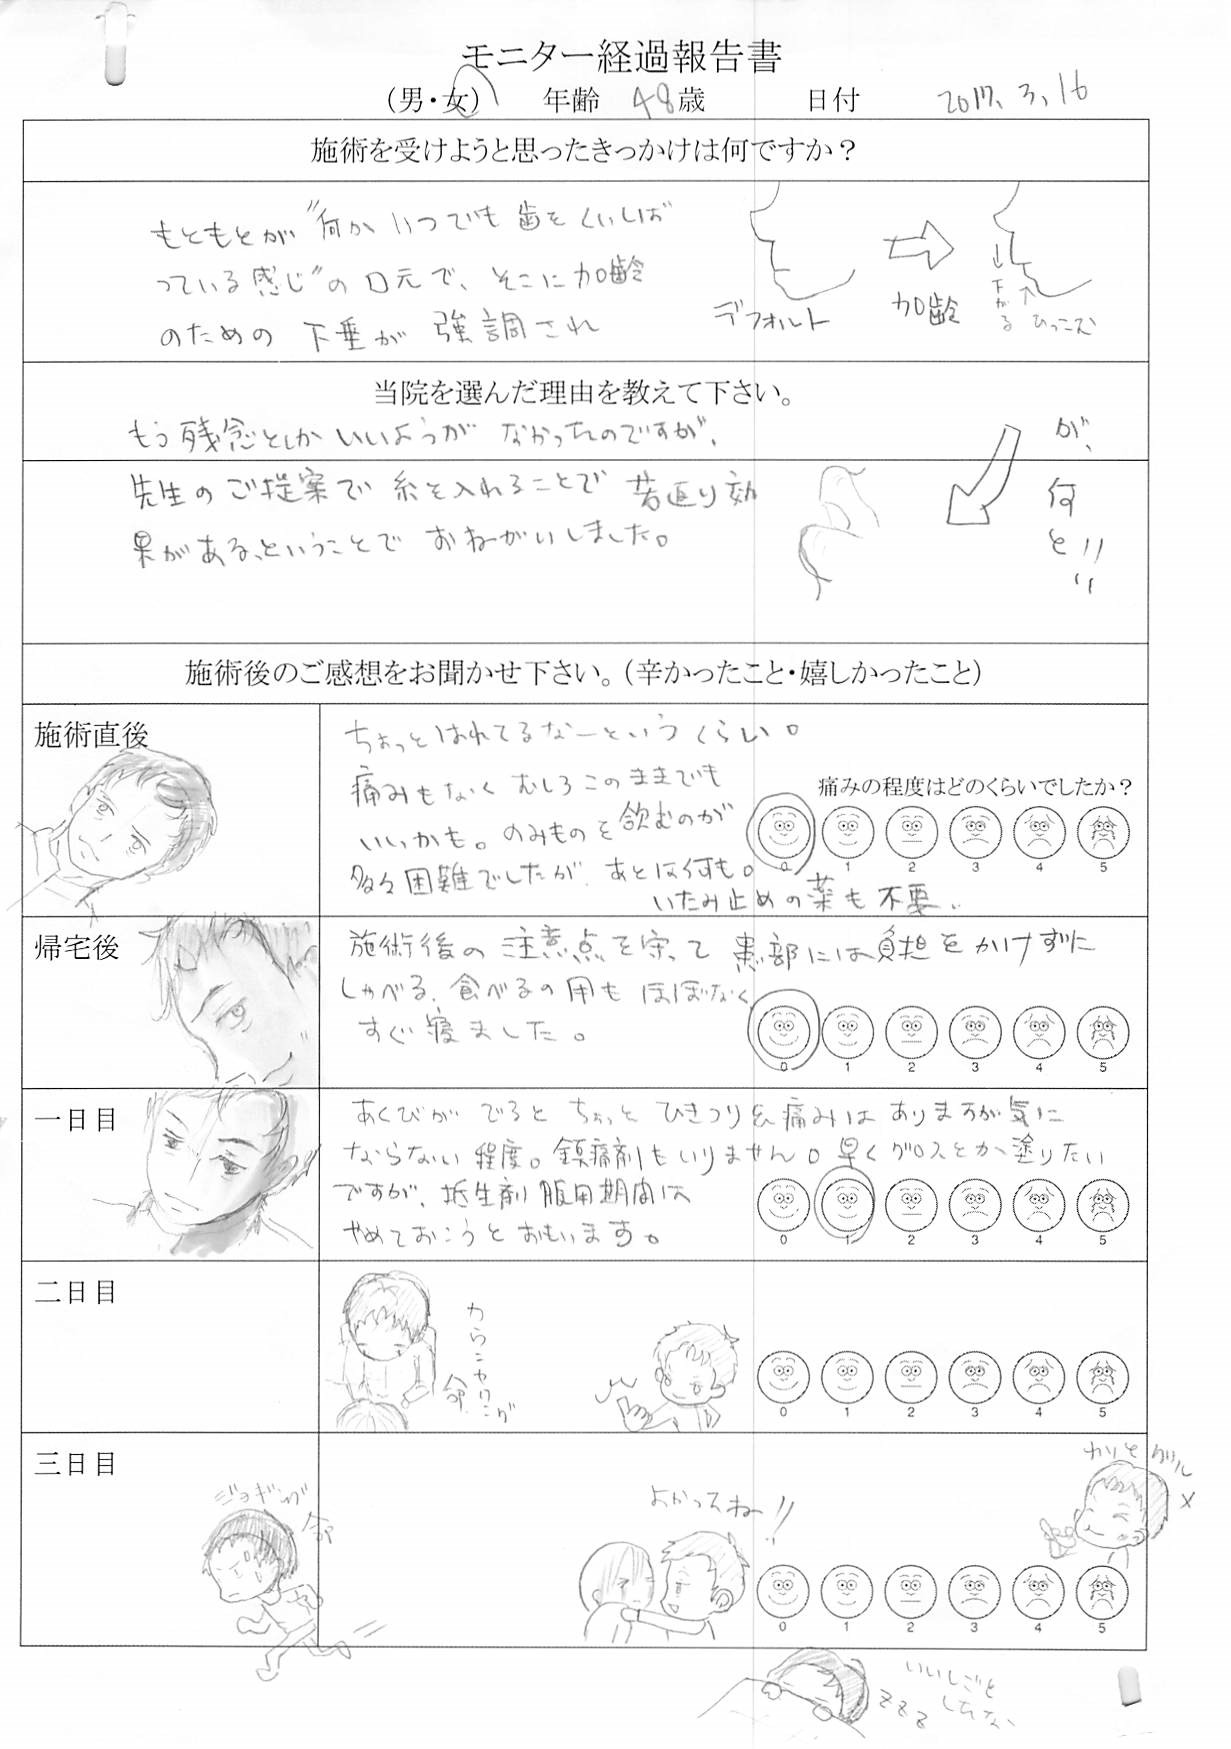 モニター経過報告書
（男・女） 年齢 48歳 日付 2017.3.16
施術を受けようと思ったきっかけは何ですか？
もともとが"何かいつでも歯をくいしば
っている感じ"の口元で、そこに加齢
のための下垂が強調され
デフォルト
加齢
下がる
ひっこむ
当院を選んだ理由を教えて下さい。
もう残念としかいいようがなかったのですが、
先生のご提案で糸を入れることで若返り効
果がある、ということでおねがいしました。
が、
何
と!!
施術後のご感想をお聞かせ下さい。（辛かったこと・嬉しかったこと）
施術直後
ちょっとはれてるなーというくらい。
痛みもなくむしろこのままでも
いいかも。のみものを飲むのが
多々困難でしたが、あとは何も。
いたみ止めの薬も不要。
痛みの程度はどのくらいでしたか？
0 1 2 3 4 5
帰宅後
施術後の注意点を守って患部には負担をかけずに
しゃべる、食べるの用もほぼなく
すぐ寝ました。
0 1 2 3 4 5
一日目
あくびがでるとちょっとひきつりと痛みはありますが気に
ならない程度。鎮痛剤もいりません。早くグロスとか塗りたい
ですが、抗生剤服用期間は
やめておこうとおもいます。
0 1 2 3 4 5
二日目
命
0 1 2 3 4 5
三日目
ジョギング
命
よかったねー!!
0 1 2 3 4 5
zzz
いいしごと